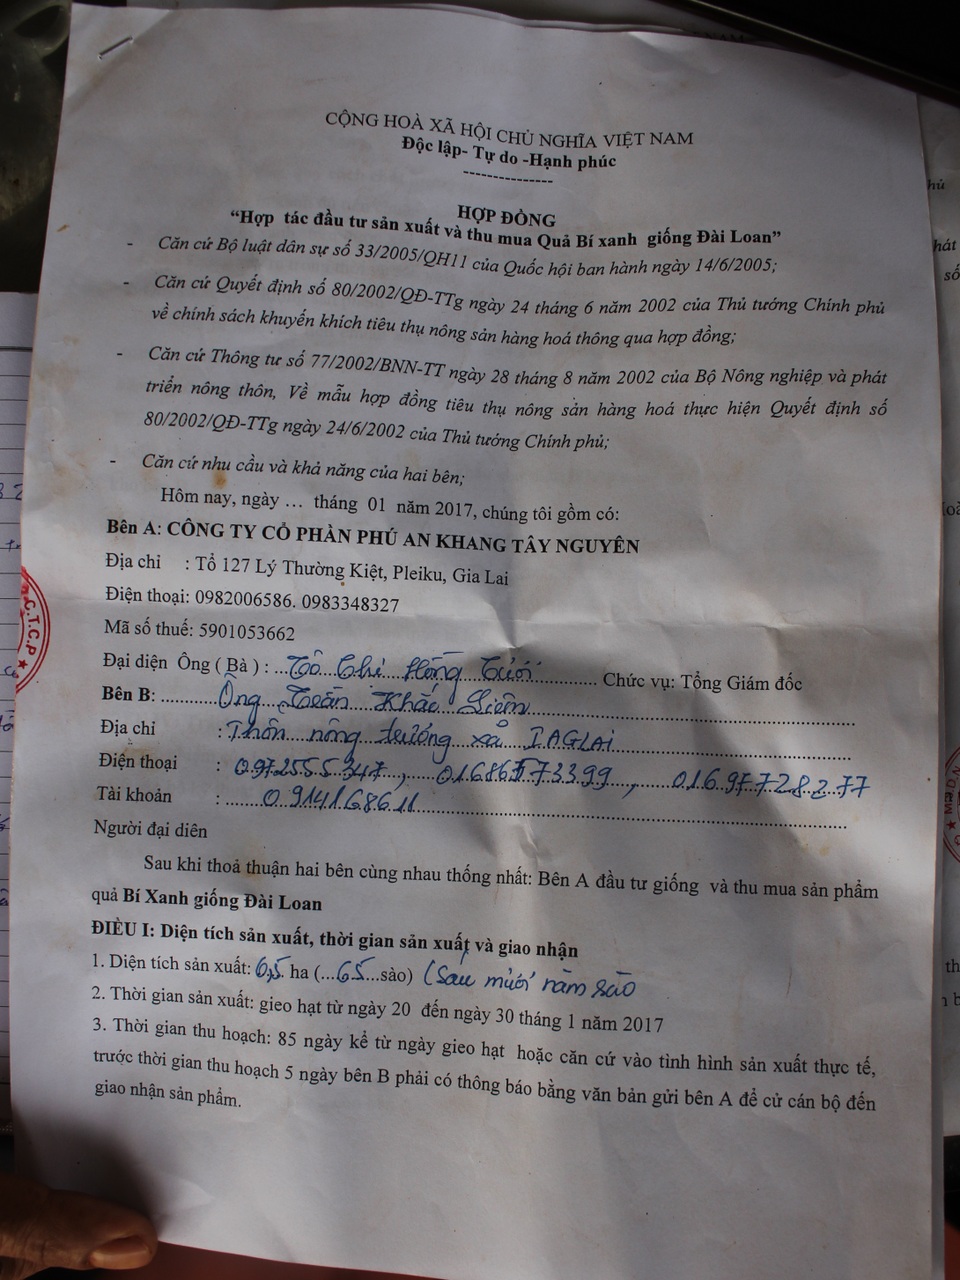 CỘNG HOÀ XÃ HỘI CHỦ NGHĨA VIỆT NAM
Độc lập- Tự do -Hạnh phúc
---------------
HỢP ĐÒNG
“Hợp tác đầu tư sản xuất và thu mua Quả Bí xanh giống Đài Loan”
- Căn cứ Bộ luật dân sự số 33/2005/QH11 của Quốc hội ban hành ngày 14/6/2005;
- Căn cứ Quyết định số 80/2002/QĐ-TTg ngày 24 tháng 6 năm 2002 của Thủ tướng Chính phủ
về chính sách khuyến khích tiêu thụ nông sản hàng hoá thông qua hợp đồng;
- Căn cứ Thông tư số 77/2002/BNN-TT ngày 28 tháng 8 năm 2002 của Bộ Nông nghiệp và phát
triển nông thôn, Về mẫu hợp đồng tiêu thụ nông sản hàng hoá thực hiện Quyết định số
80/2002/QĐ-TTg ngày 24/6/2002 của Thủ tướng Chính phủ;
- Căn cứ nhu cầu và khả năng của hai bên;
Hôm nay, ngày … tháng 01 năm 2017, chúng tôi gồm có:
Bên A: CÔNG TY CỔ PHẦN PHÚ AN KHANG TÂY NGUYÊN
Địa chỉ : Tổ 127 Lý Thường Kiệt, Pleiku, Gia Lai
Điện thoại: 0982006586. 0983348327
Mã số thuế: 5901053662
Đại diện Ông ( Bà ) : Tô Thị Hồng Tươi Chức vụ: Tổng Giám đốc
Bên B: Ông Trần Khắc Liêm
Địa chỉ : Thôn nông trường xã IAGLAI
Điện thoại : 0972555347, 01686573399, 01697728277
Tài khoản : 0914168611
Người đại diên
Sau khi thoả thuận hai bên cùng nhau thống nhất: Bên A đầu tư giống và thu mua sản phẩm
quả Bí Xanh giống Đài Loan
ĐIỀU I: Diện tích sản xuất, thời gian sản xuất và giao nhận
1. Diện tích sản xuất: 6,5 ha (...65...sào) (Sáu mươi năm sào
2. Thời gian sản xuất: gieo hạt từ ngày 20 đến ngày 30 tháng 1 năm 2017
3. Thời gian thu hoạch: 85 ngày kể từ ngày gieo hạt hoặc căn cứ vào tình hình sản xuất thực tế,
trước thời gian thu hoạch 5 ngày bên B phải có thông báo bằng văn bản gửi bên A để cử cán bộ đến
giao nhận sản phẩm.
C.T.C.P